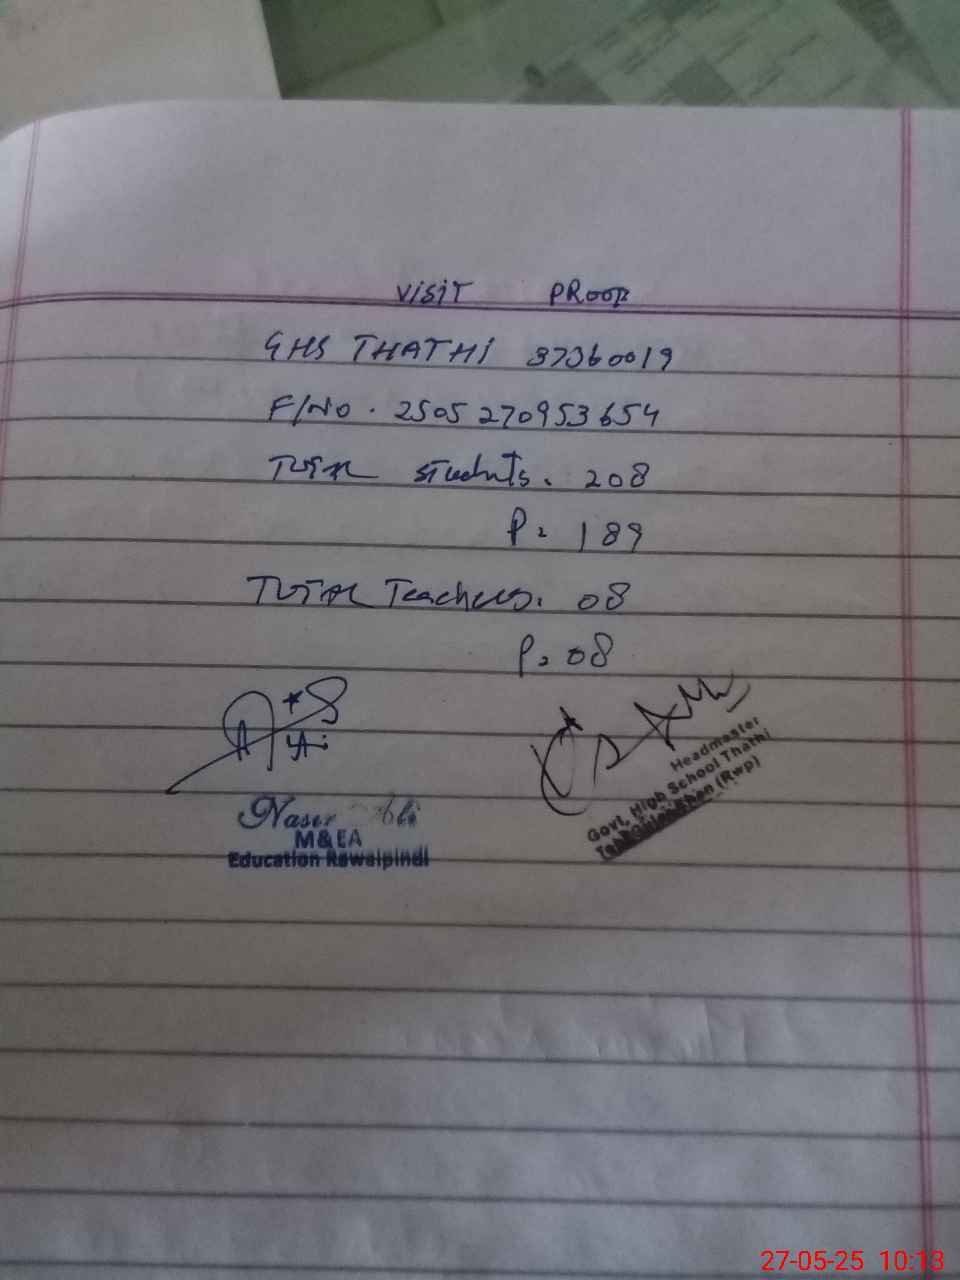 VISIT PROOF
GHS THATHI 37360019
F/NO. 2505270953654
TOTAL Students. 208
P. 189
TOTAL Teachers. 08
P. 08
Naser
M&EA
Education Rawalpindi
Headmaster
Govt. High School Thathi
(Rwp)
27-05-25 10:13